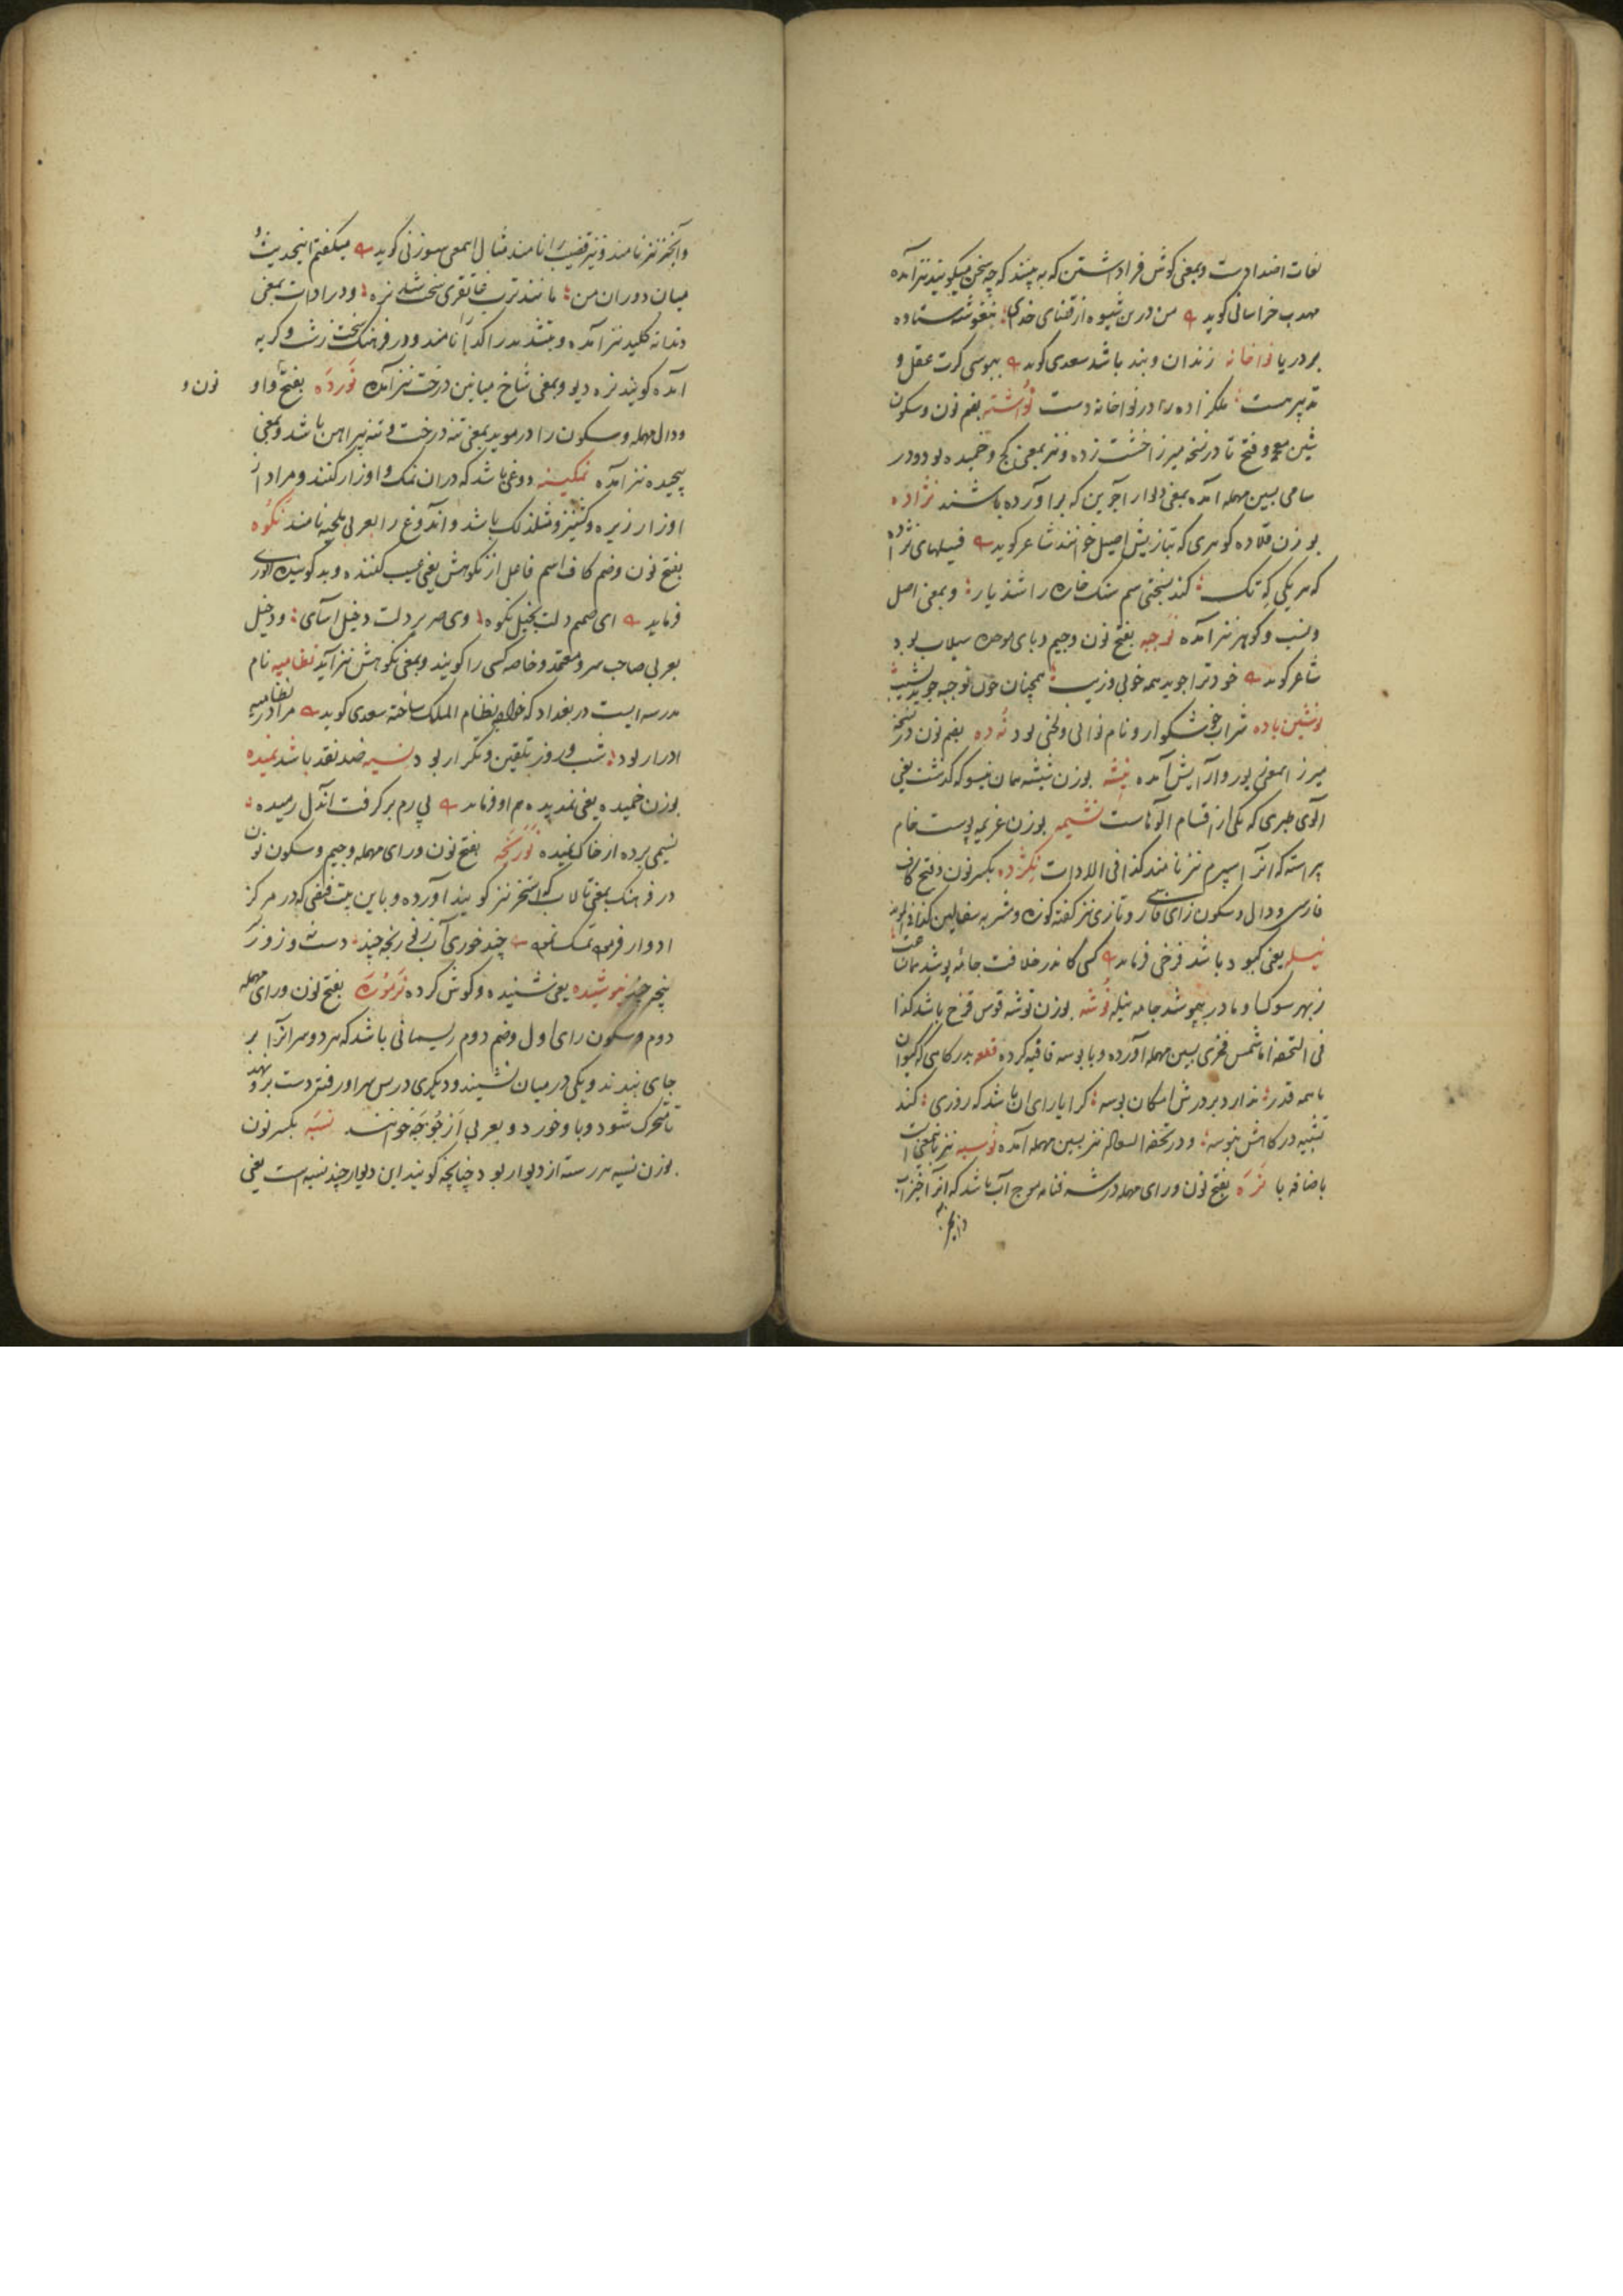 لغات اضدادست و بمعنی کوش فرا داشتن که به بینند که چه سخن میکویند نیز آمده
مهذب خراسانی کوید من درین شیوه از قفای خودی بنغوشه ستاده
بر دریا نواخانه زندان و بند باشد سعدی کوید ببوسی کرت عقل و
تدبیر هست ملکزاده را در نواخانه دست نواشته بفم نون و سکون
شین معجمه و فتح تا در نسخه میرزا خشت زده و نیز بمعنی کج و خمیده بود و در
سامی بسین مهمله آمده بمعنی دیوار آجرین که برآورده باشند نژاده
بوزن قلاده کوهری که بتازیش اصیل خوانند شاعر کوید فیلهای نژاده
که هر یکی که تک کند بسختی سم سنک خاره را شدیار و بمعنی اصل
و نسب و کوهر نیز آمده نوجبه بفتح نون و جیم و بای موحده سیلاب بود
شاعر کوید خود ترا جوید همه خوبی و زیب همچنان چون نوجبه جوید نشیب
نوشین باده شراب خوشکوار و نام نوایی و لحنی بود نوده بفم نون در نسخه
میرزا بمعنی یور و آرایش آمده نیشه بوزن شیشه همان نیسو که کذشت یعنی
آلوی طبری که یکی از اقسام آلوهاست نشیمه بوزن غریمه پوست خام
پیراسته که انرا اسپرم نیز نامند کذا فی الادات نکژده بکسر نون و فتح کاف
فارسی و دال و سکون زای فارسی و تازی نیز کفته کوزه و مشربه سفالین کذا فی المؤید
نیله یعنی کبود باشد فرخی فرماید کسی کاندر خلافت جامه پوشد همان
ز بهر سوک او مادر بپوشد جامه نیله نوشه بوزن توشه قوس قزح باشد کذا
فی التحفه اما شمس فخری بسین مهمله آورده و با بوسه قافیه کرده قطعه بدرکاهی که کیوان
باهمه قدر ندارد بر درش امکان بوسه کرا یارای ان باشد که روزی کند
تشبیه درکاهش بنوسه و در تحفه السعاده نیز بسین مهمله آمده نوسیه نیز بمعنی است
باضافه یا نره بفتح نون و رای مهمله در نسخه وفائی موج آب باشد که انرا خیزاب
و آبخیز نیز نامند و نیز قضیب را نامند مثال این معنی سوزنی کوید میکفتم این حدیث و
میان دو ران من مانند ترب خاتفری سخت شد نره و در ادات بمعنی
دندانه کلید نیز آمده و بتشدید را کدا را نامند و در فرهنک سخت زشت و کریه
آمده کویند نره دیو و بمعنی شاخ میانین درخت نیز آمده نورده بفتح واو نون و
و دال مهمله و سکون را در موید بمعنی تنه درخت و تنه پیراهن باشد و بمعنی
پیچیده نیز آمده نمکینه دوغی باشد که دران نمک و اوزار کنند و مراد از
اوزار زیره و کشنیز و مثل ذلک باشد و آن دوغ را بعربی ملحیه نامند نکوه
بفتح نون و ضم کاف اسم فاعل از نکوهش یعنی عیب کننده و بدکوینده انوری
فرماید ای صمیم دلت بخیل نکوه وی صریر دلت دخیل آسای و دخیل
بعربی صاحب سر و معتمد و خاصه کسی را کویند و بمعنی نکوهش نیز آید نظامیه نام
مدرسه ایست در بغداد که خواجه نظام الملک ساخته سعدی کوید مرا در نظامیه
ادرار بود شب و روز تلقین و تکرار بود نسیه ضد نقد باشد نمیده
بوزن خمیده یعنی نمدیده هم او فرماید پی رم برکرفت آن دل رمیده
نسیمی برده از خاک نمیده نورنجه بفتح نون و رای مهمله و جیم و سکون نون
در فرهنک بمعنی تالاب که استخر نیز کویند آورده و باین بیت فلفی که در مرکز
ادوار فرموده تمسک نموده چند خوری آب زنی رنجه چند دست و زور
پنجه چند نیوشیده یعنی شنیده و کوش کرده نرموره بفتح نون و رای مهمله
دوم و سکون رای اول و ضم دوم ریسمانی باشد که هر دو سر آنرا بر
جای بندند و یکی در میان نشیند و دیکری در پس سر او رفته دست بر و نهد
تا متحرک شود و باد خورد و بعربی ارجوجه خوانند نسبه بکسر نون
بوزن نسیه هر رسته از دیوار بود چنانچه کویند این دیوار چند نسبه است یعنی